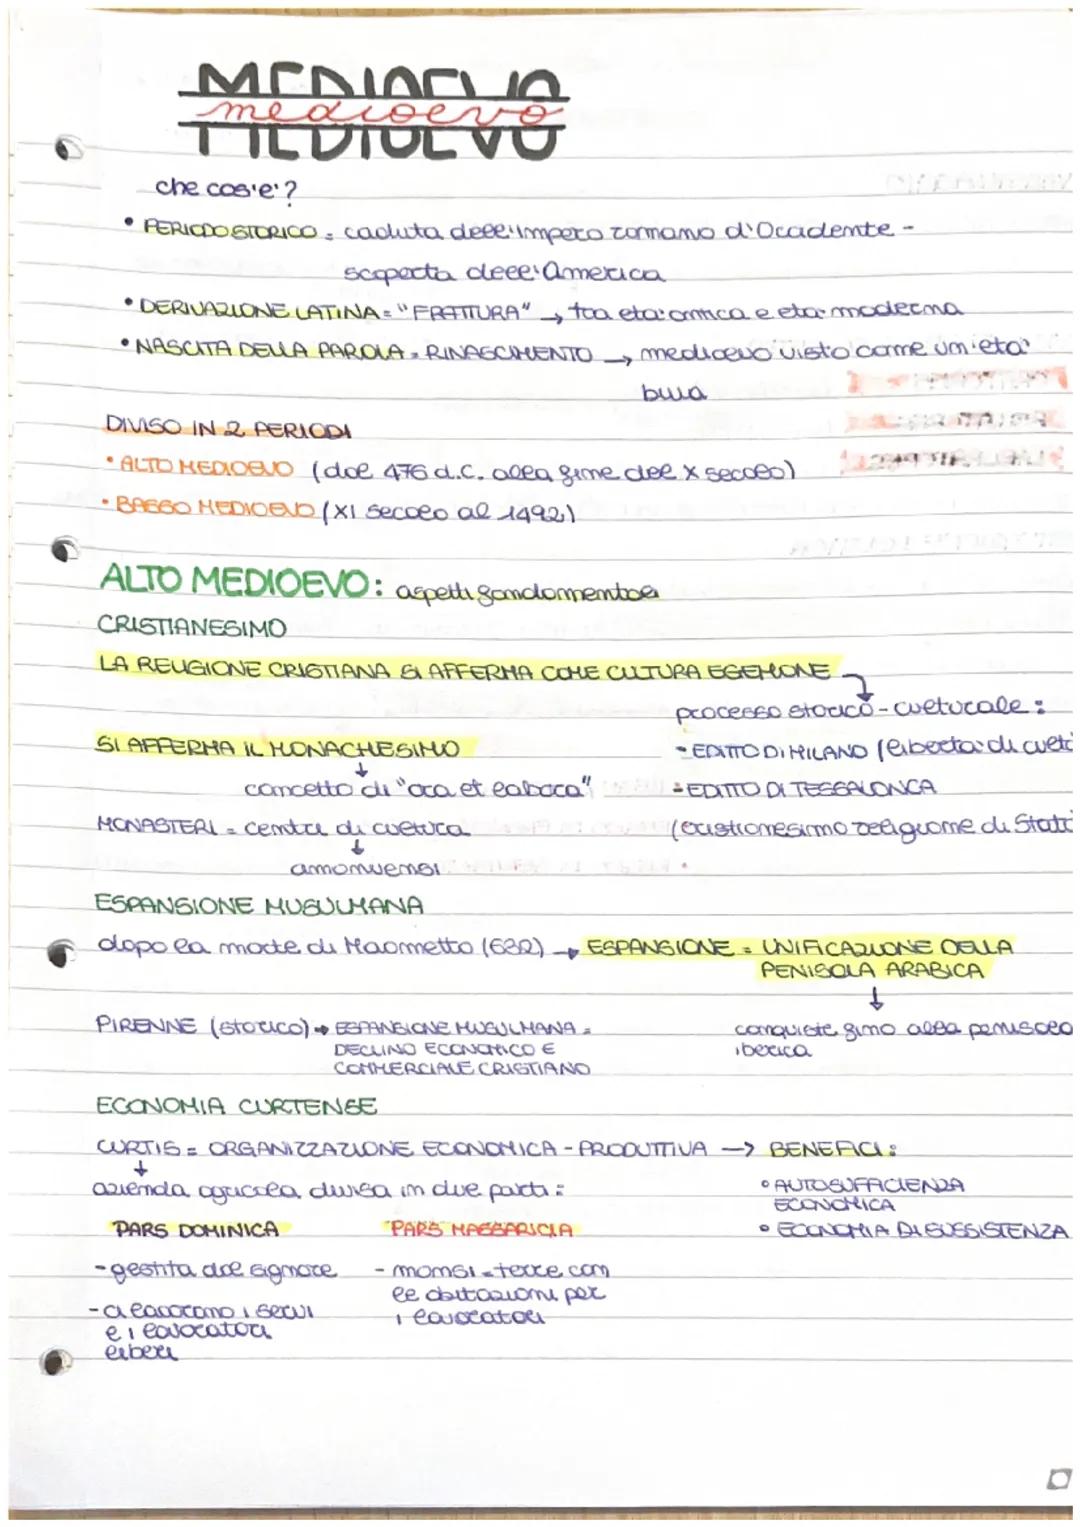 MEDIOEVO
medioevo
che cos'e'?
• PERIODO STORICO = caduta dell'impero romano d'Occidente -
scoperta dell'America
• DERIVAZIONE LATINA = "FRATTURA" → tra eta' antica e eta' moderna
• NASCITA DELLA PAROLA = RINASCIMENTO → medioevo visto come un'eta'
buia
DIVISO IN 2 PERIODI
• ALTO MEDIOEVO (dal 476 d.C. alla fine del X secolo)
• BASSO MEDIOEVO (XI secolo al 1492)
ALTO MEDIOEVO: aspetti fondamentali
CRISTIANESIMO
LA RELIGIONE CRISTIANA SI AFFERMA COME CULTURA EGEMONE
processo storico-culturale:
SI AFFERMA IL MONACHESIMO
- EDITTO DI MILANO (liberta' di cult
↓
concetto di "ora et labora"
- EDITTO DI TESSALONICA
MONASTERI = centri di cultura
(cristianesimo religione di Stato
↓
amanuensi
ESPANSIONE MUSULMANA
dopo la morte di Maometto (632) → ESPANSIONE = UNIFICAZIONE DELLA
PENISOLA ARABICA
↓
PIRENNE (storico) → ESPANSIONE MUSULMANA =
DECLINO ECONOMICO E
COMMERCIALE CRISTIANO
conquiste fino alla penisola
iberica
ECONOMIA CURTENSE
CURTIS = ORGANIZZAZIONE ECONOMICA - PRODUTTIVA → BENEFICI:
↓
azienda agricola divisa in due parti:
• AUTOSUFFICIENZA
ECONOMICA
• ECONOMIA DI SUSSISTENZA
PARS DOMINICA
- gestita dal signore
- ci lavorano i servi
e i lavoratori
liberi
PARS MASSARICIA
- mansi = terre con
le abitazioni per
i lavoratori